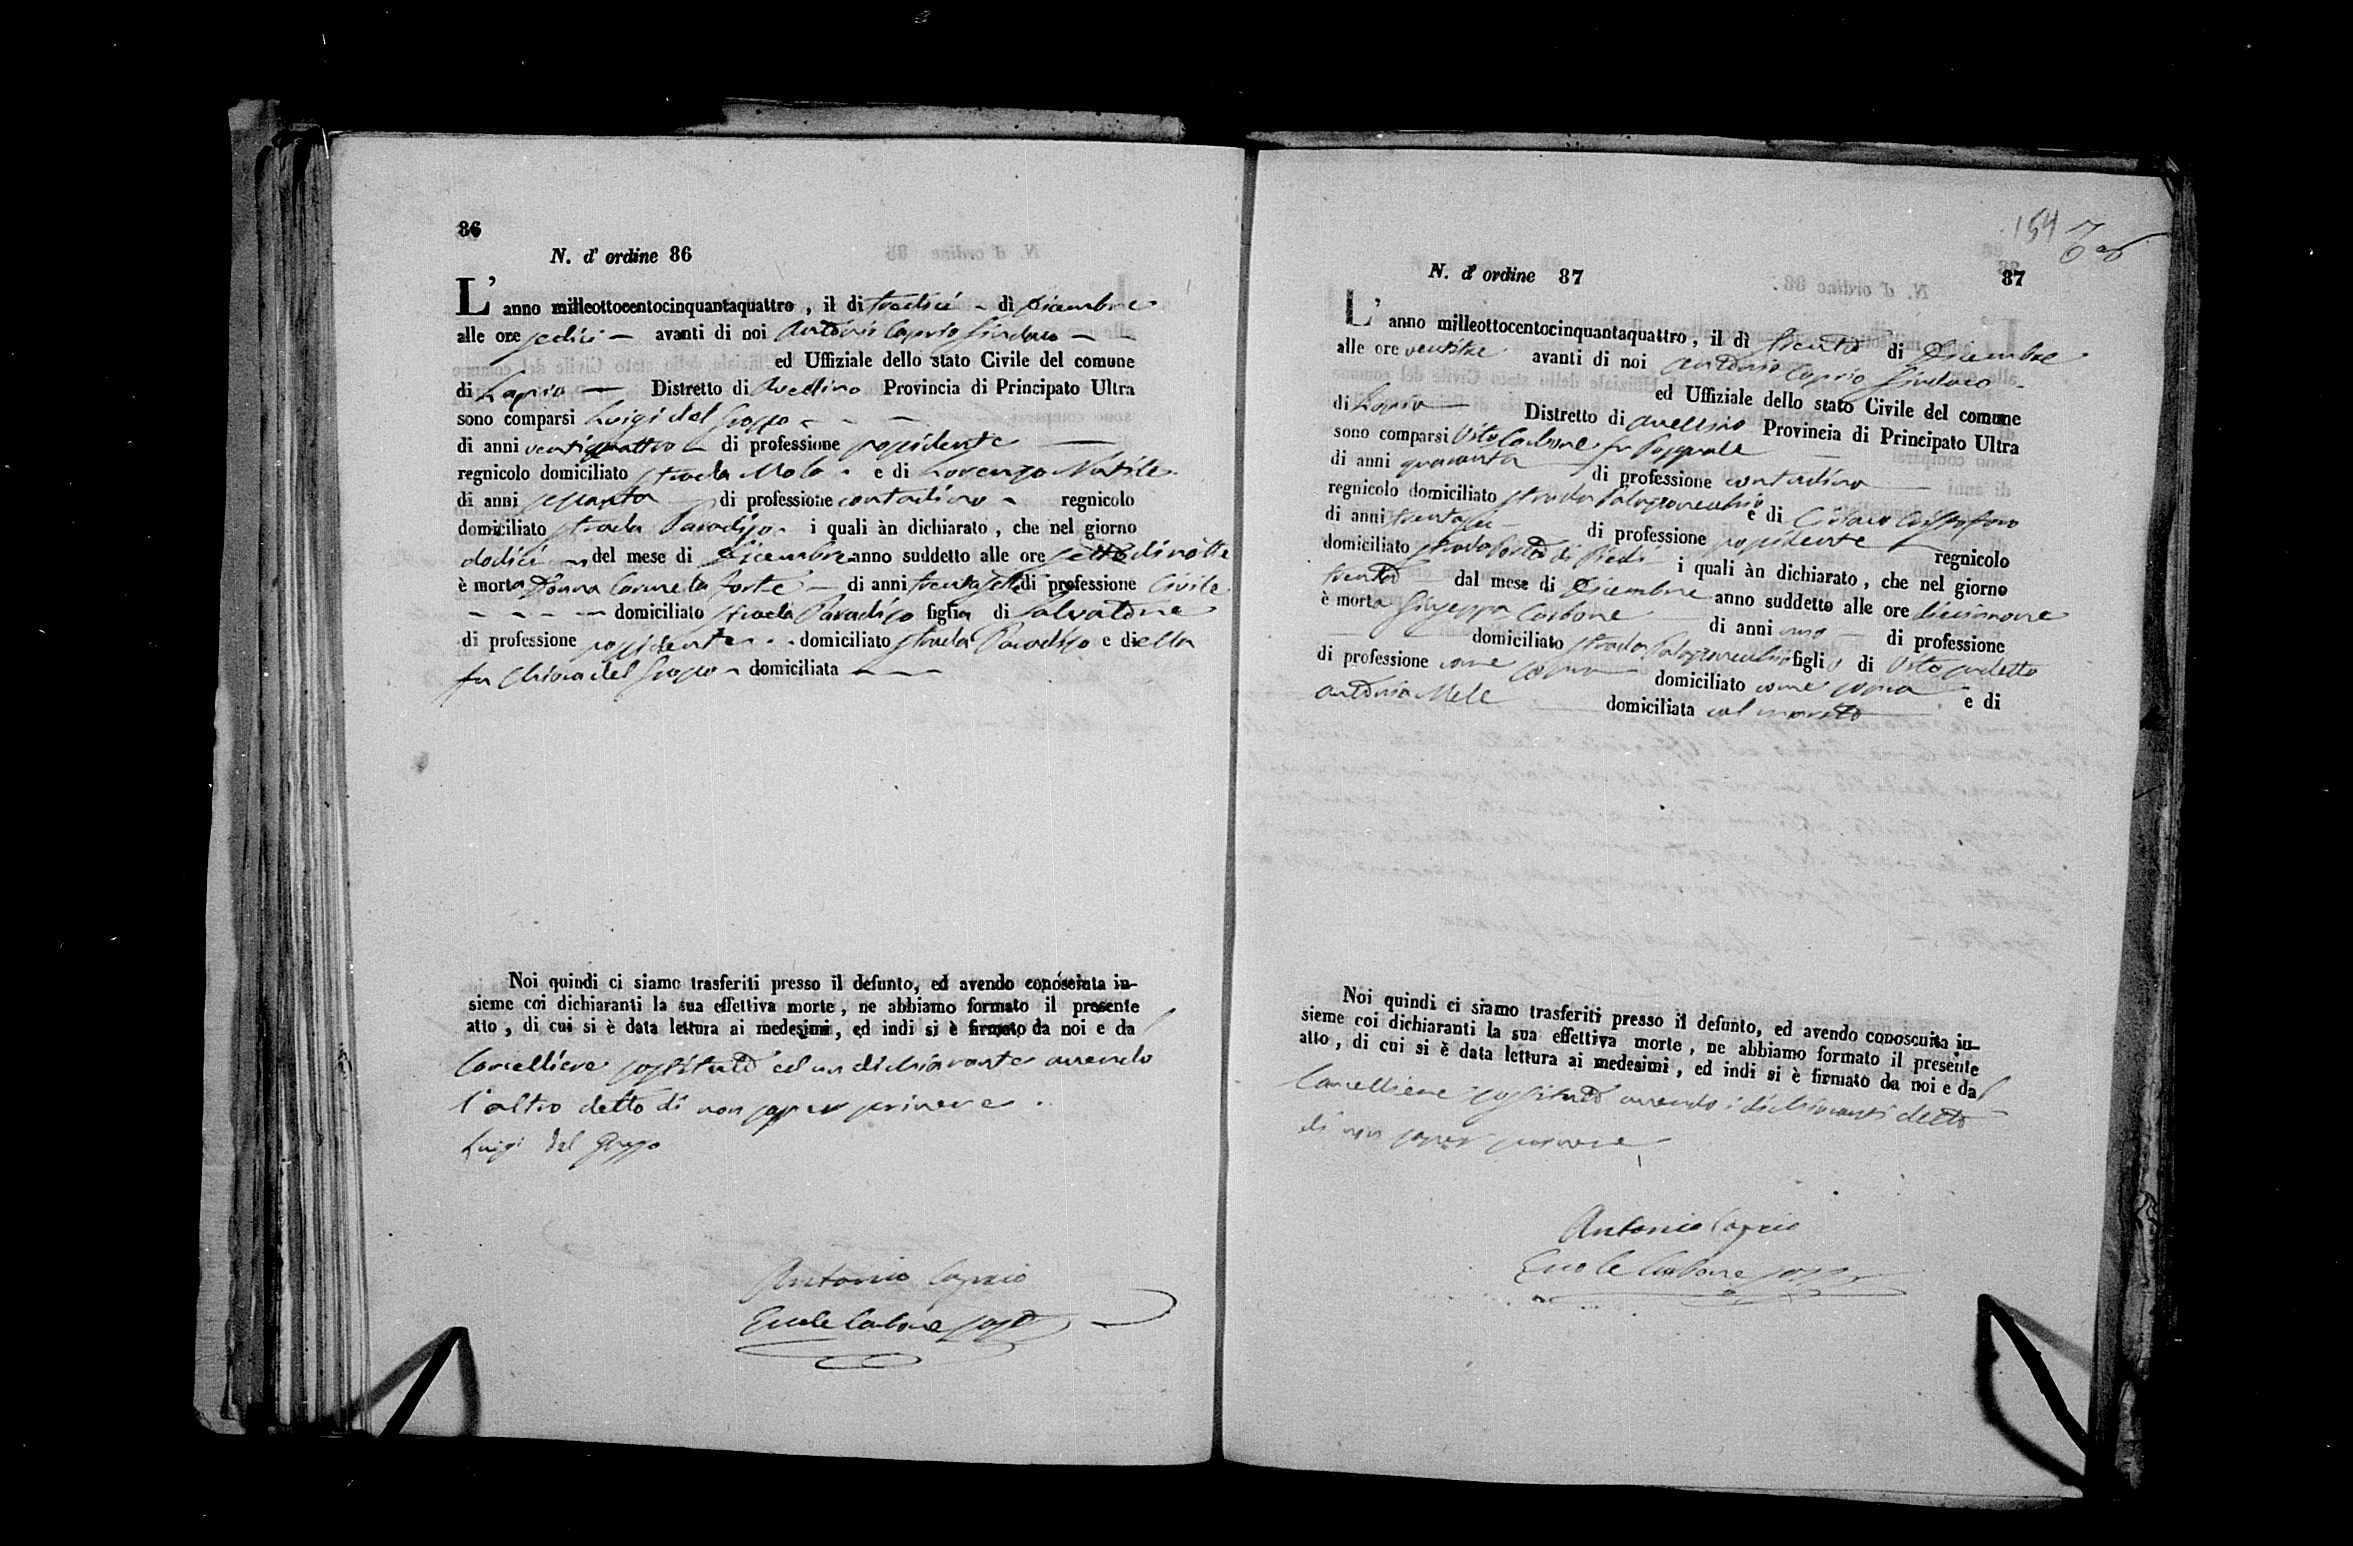 86
N. d' ordine 86
L' anno milleottocentocinquantaquattro, il di tredici di Dicembre
alle ore sedici avanti di noi Antonio Caprio Sindaco
ed Uffiziale dello stato Civile del comune
di Lapio Distretto di Avellino Provincia di Principato Ultra
sono comparsi Luigi del Grosso
di anni ventiquattro di professione possidente
regnicolo domiciliato strada Mola e di Lorenzo Natile
di anni sessanta di professione contadino regnicolo
domiciliato strada Paradiso i quali àn dichiarato, che nel giorno
dodici del mese di Dicembre anno suddetto alle ore sette di notte
è morta Donna Carmela Forte di anni trentasette di professione Civile
domiciliato strada Paradiso figlia di Salvatore
di professione possidente domiciliato strada Paradiso e di ella
fu Chiara del Grosso domiciliata
Noi quindi ci siamo trasferiti presso il defunto, ed avendo conosciuta in-
sieme coi dichiaranti la sua effettiva morte, ne abbiamo formato il presente
atto, di cui si è data lettura ai medesimi, ed indi si è firmato da noi e dal
Cancelliere sostituto ed un dichiarante avendo
l'altro detto di non saper scrivere.
Luigi del Grosso
Antonio Caprio
Ercole Carbone sost
154
87
N. d' ordine 87
L' anno milleottocentocinquantaquattro, il di trenta di Dicembre
alle ore ventitre avanti di noi Antonio Caprio Sindaco
ed Uffiziale dello stato Civile del comune
di Lapio Distretto di Avellino Provincia di Principato Ultra
sono comparsi Vito Carbone fu Pasquale
di anni quaranta di professione contadino
regnicolo domiciliato strada e di
di anni trentasei di professione possidente regnicolo
domiciliato strada Piedi i quali àn dichiarato, che nel giorno
trenta dal mese di Dicembre anno suddetto alle ore diciannove
è morta Giuseppa Carbone di anni uno di professione
domiciliato strada figlia di Vito sudetto
di professione come sopra domiciliato come sopra e di
Antonia Mele domiciliata col marito
Noi quindi ci siamo trasferiti presso il defunto, ed avendo conoscuita in-
sieme coi dichiaranti la sua effettiva morte, ne abbiamo formato il presente
atto, di cui si è data lettura ai medesimi, ed indi si è firmato da noi e dal
Cancelliere sostituto avendo i dichiaranti detto
di non saper scrivere
Antonio Caprio
Ercole Carbone sost